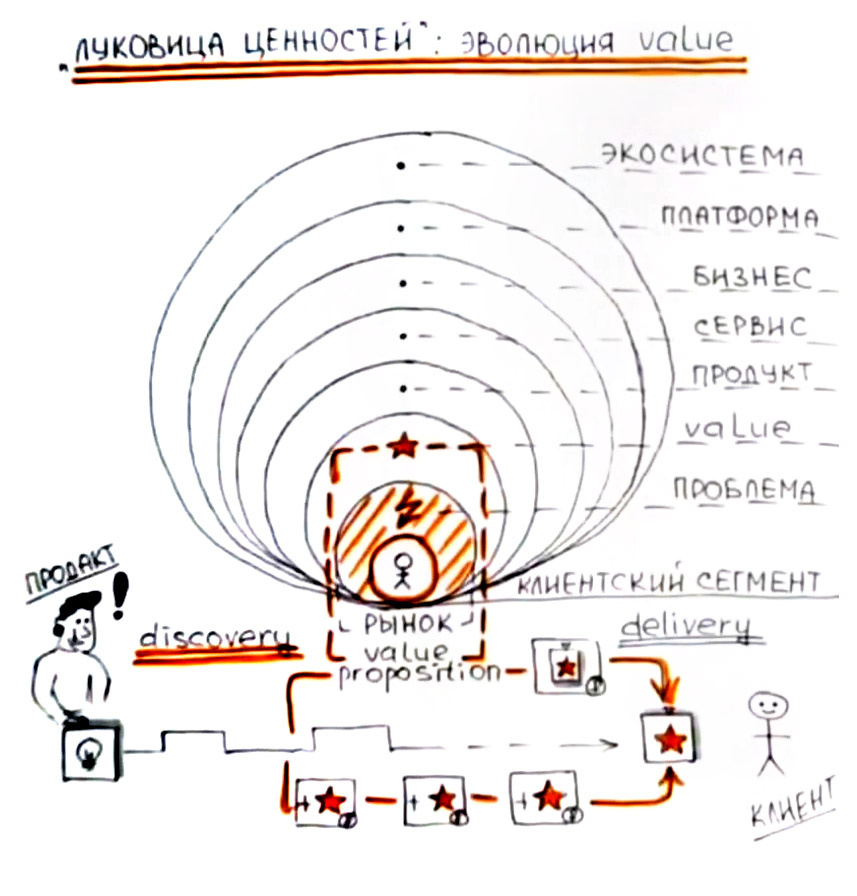 "ЛУКОВИЦА ЦЕННОСТЕЙ": ЭВОЛЮЦИЯ value
ЭКОСИСТЕМА
ПЛАТФОРМА
БИЗНЕС
СЕРВИС
ПРОДУКТ
value
ПРОБЛЕМА
КЛИЕНТСКИЙ СЕГМЕНТ
РЫНОК
value
proposition
ПРОДАКТ
!
discovery
delivery
+
+
+
КЛИЕНТ